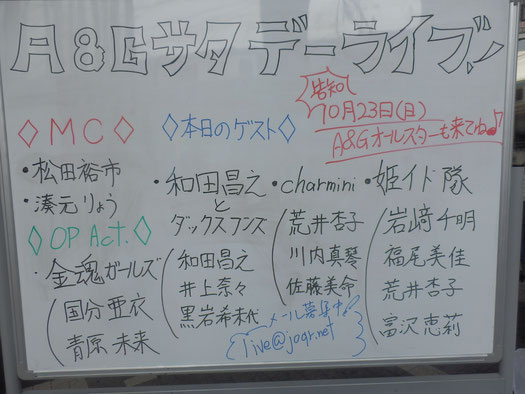 A&Gサタデーライブ!
告知
10月23日(日)
A&Gオールスターも来てね♪
◇MC◇
・松田裕市
・湊元りょう
◇OP Act.◇
・金魂ガールズ
国分亜衣
青原未来
◇本日のゲスト◇
・和田昌之
と
ダックスフンズ
和田昌之
井上奈々
黒岩希未代
・charmini
荒井杏子
川内真琴
佐藤美命
・姫イド隊
岩﨑千明
福尾美佳
荒井杏子
富沢恵莉
メール募集中!
live@joqr.net